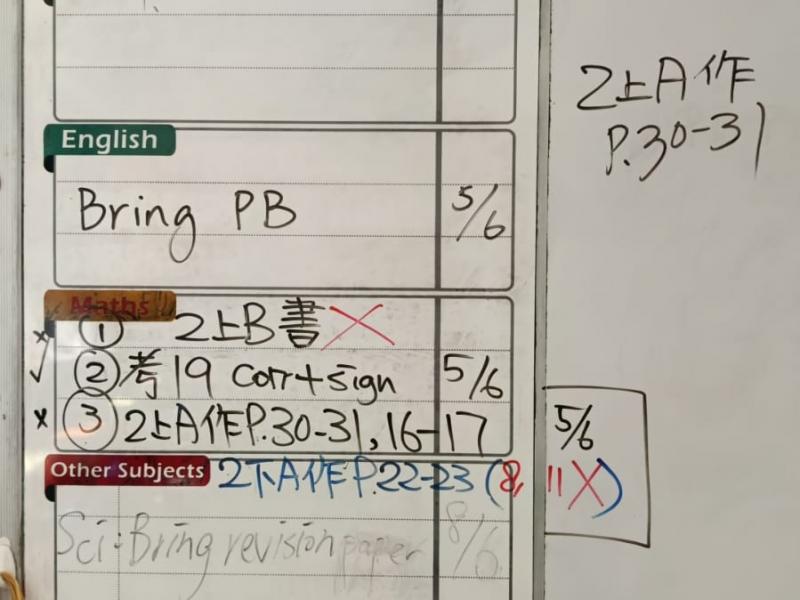 2上A作
P.30-31
English
Bring PB 5/6
Maths
① 2上B書 X
② 考19 corr+sign 5/6
③ 2上A作P.30-31, 16-17 5/6
Other Subjects 2下A作P.22-23 (8, 11X)
Sci: Bring revision paper 8/6